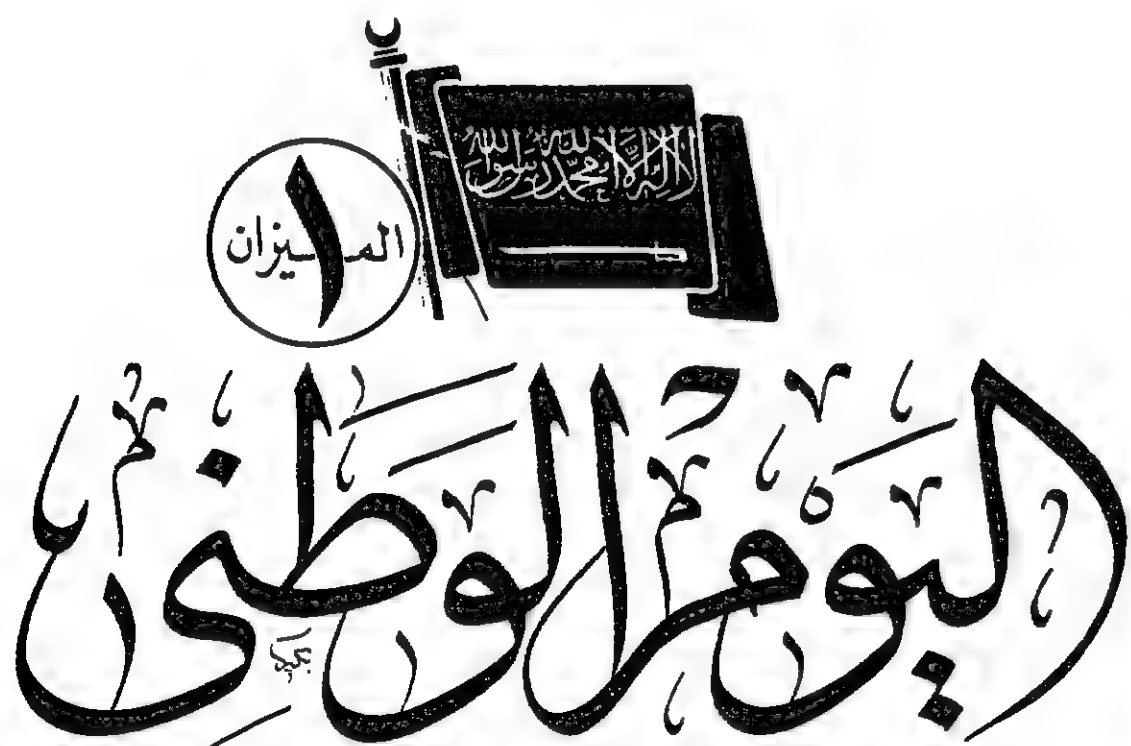 لا إله إلا الله محمد رسول الله
١
الميزان
اليوم الوطني